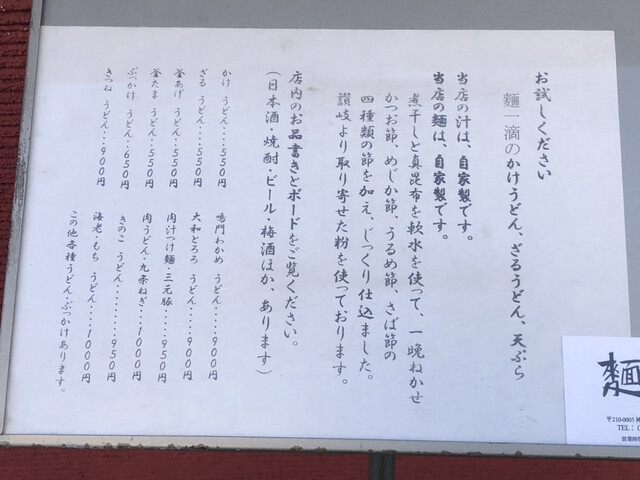 お試しください
麺一滴のかけうどん、ざるうどん、天ぷら
当店の汁は、自家製です。
当店の麺は、自家製です。
煮干しと真昆布を軟水を使って、一晩ねかせ
かつお節、めじか節、うるめ節、さば節の
四種類の節を加え、じっくり仕込ました。
讃岐より取り寄せた粉を使っております。
店内のお品書きとボードをご覧ください。
(日本酒・焼酎・ビール・梅酒ほか、あります)
かけ うどん・・・550円
ざる うどん・・・550円
釜あげ うどん・・550円
釜たま うどん・・550円
ぶっかけ うどん・650円
きつね うどん・・900円
鳴門わかめ うどん・・・900円
大和とろろ うどん・・・900円
肉汁つけ麺・三元豚・・・950円
肉うどん・九条ねぎ・・1000円
きのこ うどん・・・・・・950円
海老・もち うどん・・・1000円
この他各種うどん・ぶっかけあります。
麺
〒210-0005 神
TEL:
営業時